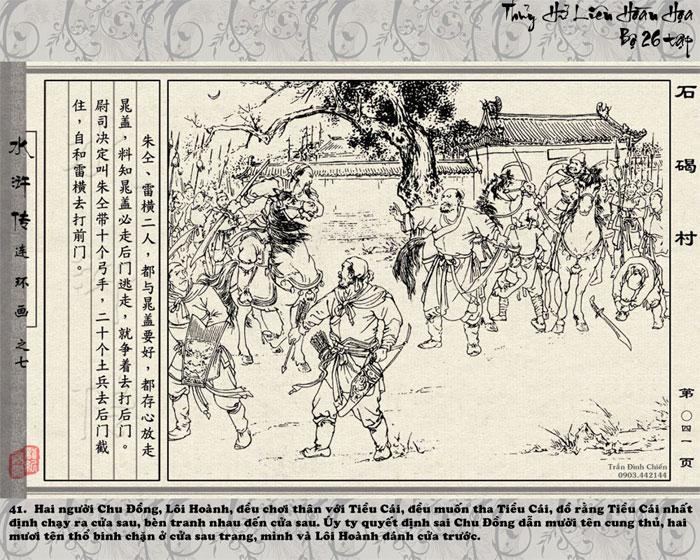 Thủy Hử Liên Hoàn Họa
Bộ 26 tập
石碣村
第〇四一页
水浒传连环画之七
朱仝、雷横二人，都与晁盖要好，都存心放走
晁盖，料知晁盖必走后门逃走，就争着去打后门。
尉司决定叫朱仝带十个弓手，二十个土兵去后门截
住，自和雷横去打前门。
Trần Đình Chiến
0903.442144
41. Hai người Chu Đồng, Lôi Hoành, đều chơi thân với Tiều Cái, đều muốn tha Tiều Cái, đồ rằng Tiều Cái nhất
định chạy ra cửa sau, bèn tranh nhau đến cửa sau. Úy ty quyết định sai Chu Đồng dẫn mười tên cung thủ, hai
mươi tên thổ binh chặn ở cửa sau trang, mình và Lôi Hoành đánh cửa trước.